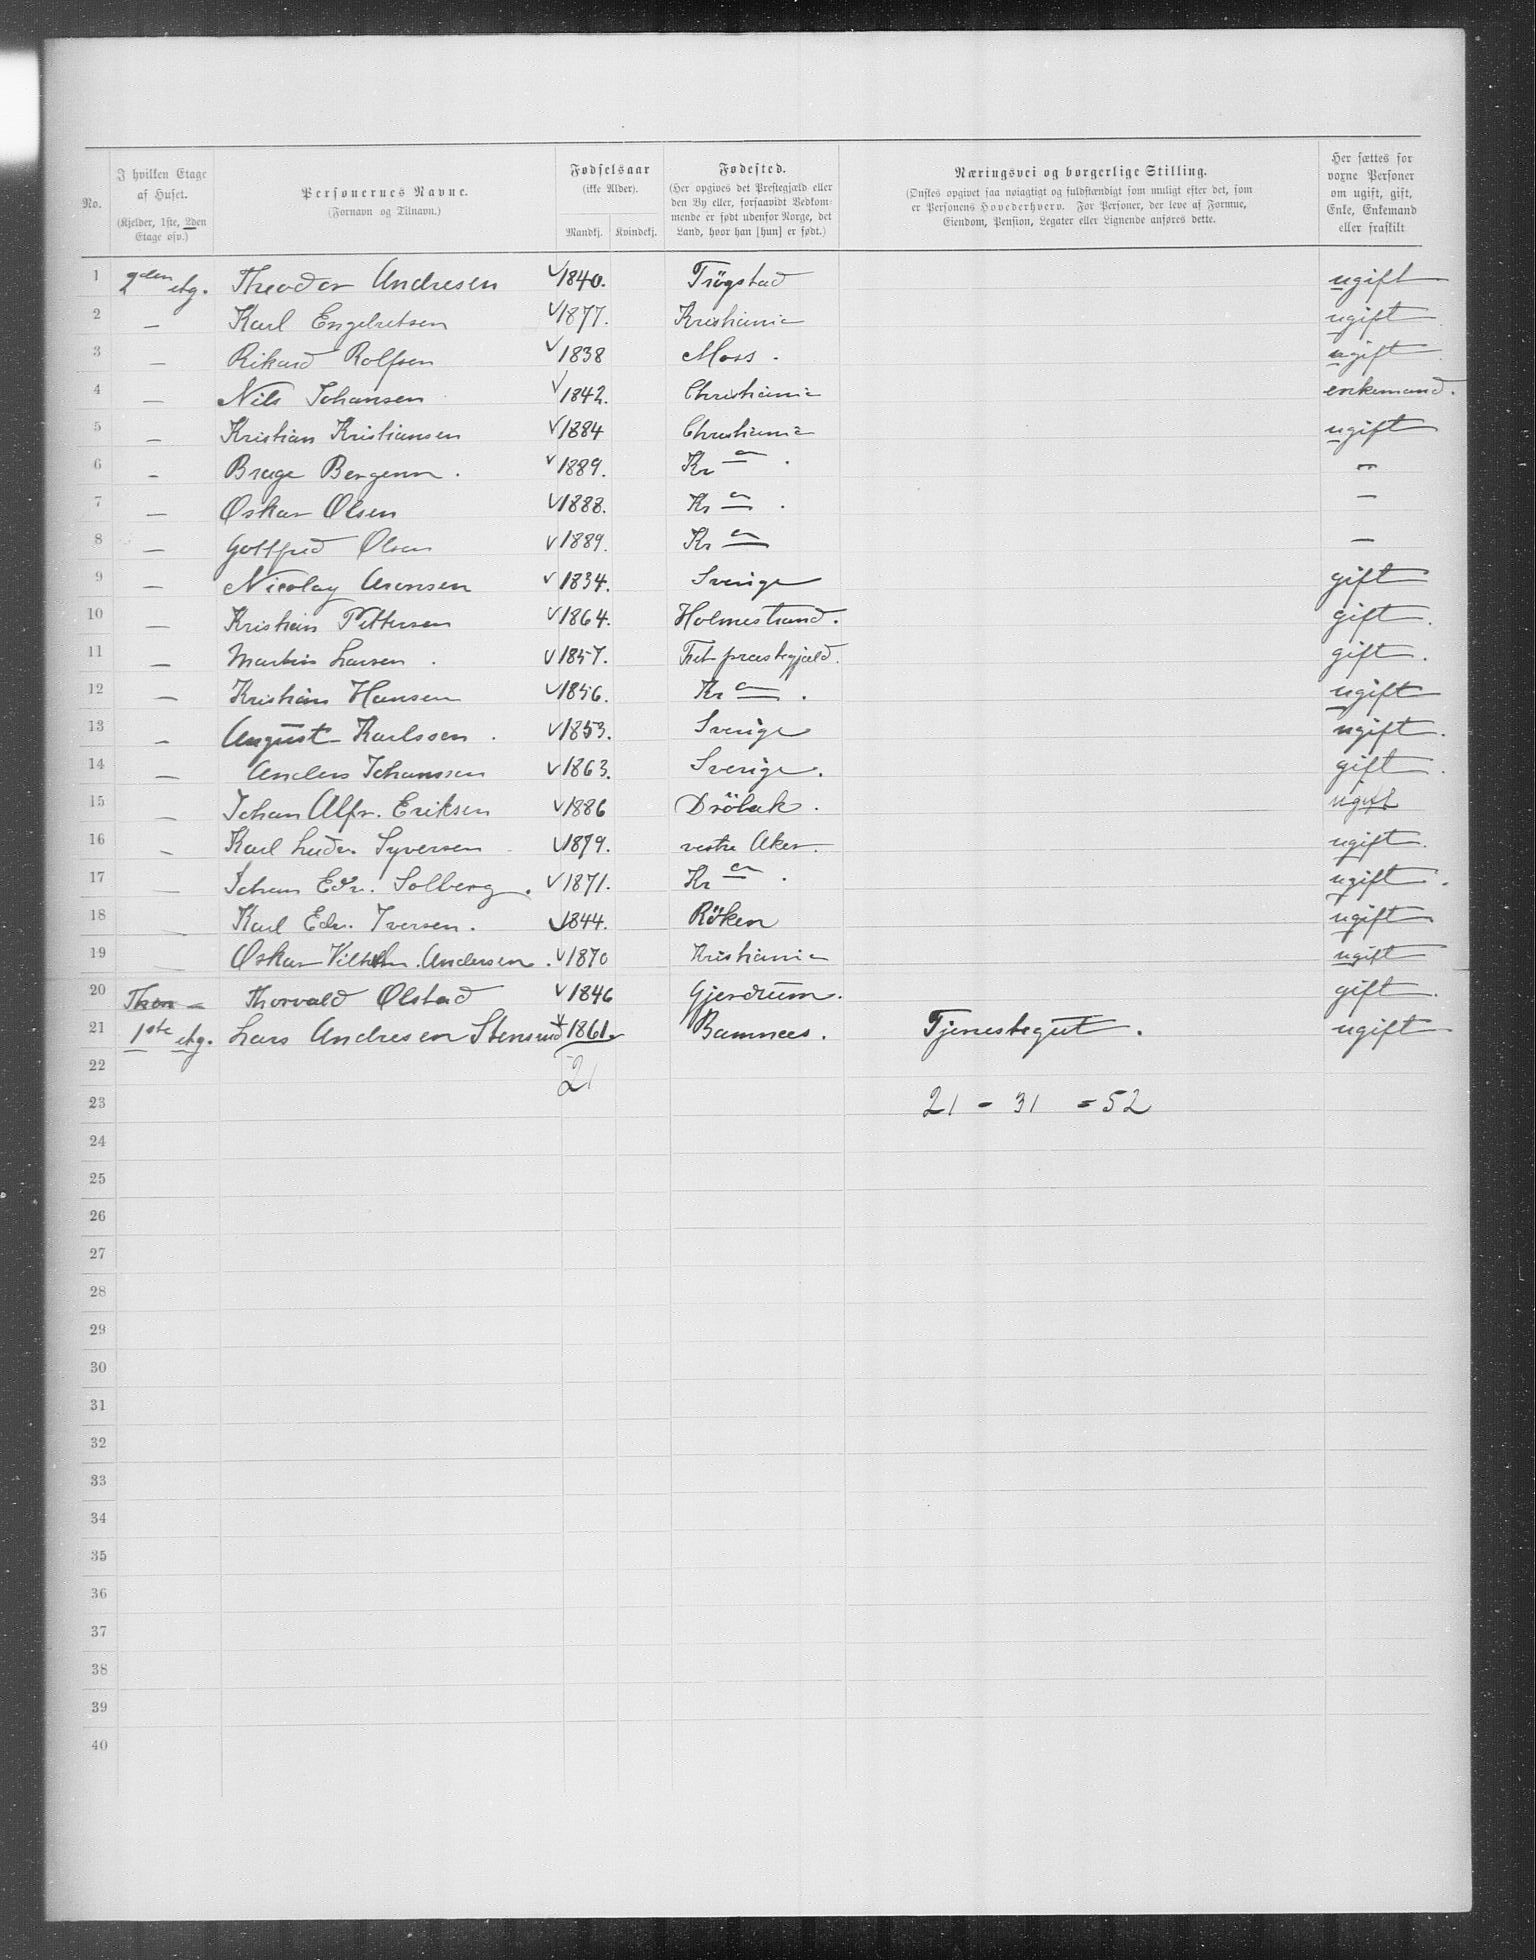 No.
I hvilken Etage af Huset.
(Kjelder, 1ste, 2den Etage osv.)
Personernes Navne.
(Fornavn og Tilnavn.)
Fødselsaar
(ikke Alder).
Mandkj. Kvindekj.
Fødested.
(Her opgives det Prestegjæld eller den By eller, forsaavidt Vedkommende er født udenfor Norge, det Land, hvor han [hun] er født.)
Næringsvei og borgerlige Stilling.
(Ønskes opgivet saa nøiagtigt og fuldstændigt som muligt efter det, som er Personens Hovederhverv. For Personer, der leve af Formue, Eiendom, Pension, Legater eller Lignende anføres dette.
Her sættes for voxne Personer om ugift, gift, Enke, Enkemand eller fraskilt
1 2den etg. Theodor Andresen √ 1840. Trögstad ugift
2 — Karl Engebretsen √ 1877. Kristiania ugift
3 — Rikard Rolfsen √ 1838 Moss. ugift
4 — Nils Johansen √ 1842. Christiania enkemand.
5 — Kristian Kristiansen √ 1884 Christiania ugift
6 — Brage Bergem. √ 1889. Kra. —
7 — Oskar Olsen √ 1888. Kra. —
8 — Gottfred Olsen √ 1889. Kra —
9 — Nicolay Aronsen √ 1834. Sverige gift
10 — Kristian Pettersen √ 1864. Holmestrand. gift.
11 — Martin Larsen. √ 1857. Fet præstegjæld. gift.
12 — Kristian Hansen √ 1856. Kra. ugift
13 — August Karlssen. √ 1853. Sverige ugift.
14 — Anders Johanssen √ 1863. Sverige. gift.
15 — Johan Alfr. Eriksen √ 1886 Dröbak. ugift
16 — Karl Ludv. Syversen √ 1879. vestre Aker. ugift.
17 — Johan Edv. Solberg. √ 1871. Kra. ugift.
18 — Karl Edv. Iversen. √ 1844. Röken ugift
19 — Oskar Vilhelm. Andersen. √ 1870 Kristiania ugift
20 Thor — Thorvald Olstad √ 1846 Gjerdrum. gift.
21 1ste etg. Lars Andresen Stensrud 1861. Bamnees. Tjenestegut. ugift
22 21
23 21 - 31 = 52
24
25
26
27
28
29
30
31
32
33
34
35
36
37
38
39
40